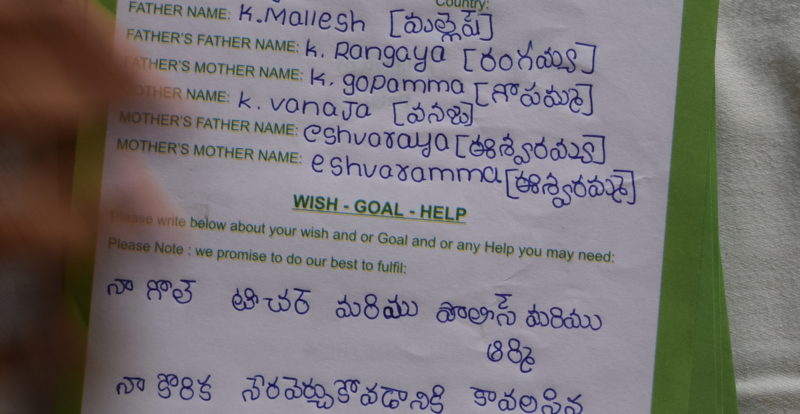 Country:
FATHER NAME: K.Mallesh [మల్లెష్]
FATHER'S FATHER NAME: K. Rangaya [రంగయ్య]
FATHER'S MOTHER NAME: K. gopamma [గోపమ్మ]
MOTHER NAME: K. vanaja [వనజ]
MOTHER'S FATHER NAME: eshvaraya [ఈశ్వరయ్య]
MOTHER'S MOTHER NAME: eshvaramma [ఈశ్వరమ్మ]
WISH - GOAL - HELP
Please write below about your wish and or Goal and or any Help you may need:
Please Note : we promise to do our best to fulfil:
నా గోల్ టిచర్ మరియు పొలిస్ మరియు
ఆర్మి
నా కొరిక నెరవెర్చుకోవడానికి కావలసిన